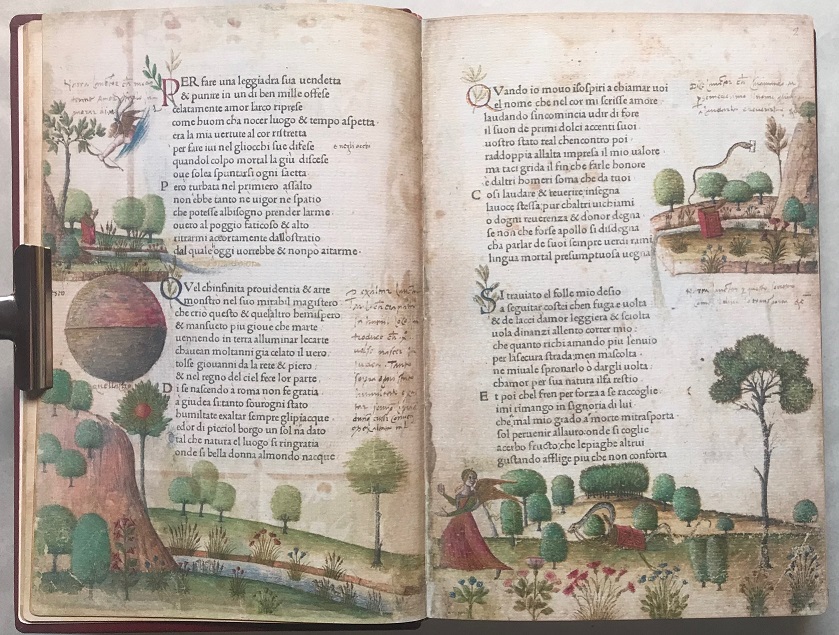 PER fare una leggiadra sua uendetta
& punire in un di ben mille offese
celatamente amor larco riprese
come huom cha nocer luogo & tempo aspetta
era la mia uertute al cor ristretta
per fare iui nel gliocchi sue difese
quandol colpo mortal la giu discese
oue solea spuntarsi ogni saetta
Pero turbata nel primiero assalto
non ebbe tanto ne uigor ne spatio
che potesse albisogno prender larme
oueto al poggio faticoso & alto
ritrarmi accortamente dallo stratio
dal quale oggi uorrebbe & nonpo aitarme ·
QVel chinfinita prouidentia & arte
monstro nel suo mirabil magistero
che crio questo & quelaltro hemispero
& mansueto piu gioue che marte
uennendo in terra alluminar lecarte
chauean moltanni gia celato il uero
tolse giouanni da la rete & piero
& nel regno del ciel fece lor parte
Di se nascendo a roma non fe gratia
a giudea si tanto sourogni stato
humiltate exaltar sempre glipiacque
edor di picciol borgo un sol na dato
tal che natura el luogo si ringratia
onde si bella donna almondo nacque
QVando io mouo isospiri a chiamar uoi
el nome che nel cor mi scrisse amore
laudando sincomincia udir di fore
il suon de primi dolci accenti suoi
uostro stato real chencontro poi
raddoppia allalta impresa il mio ualore
ma taci grida il fin che farle honore
e daltri homeri soma che da tuoi
Cosi laudare & reuerire insegna
lauoce stessa pur chaltri uichiami
o dogni reuerenza & donor degna
se non che forse apollo si disdegna
cha parlar de suoi sempre uerdi rami
lingua mortal presumptuosa uegna
SI trauiato el folle mio desio
a seguitar costei chen fuga e uolta
& de lacci damor leggiera & sciolta
uola dinanzi allento correr mio
che quanto richiamando piu lenuio
per lasecura strada men mascolta
ne miuale spronarlo o dargli uolta
chamor per sua natura ilfa restio
Et poi chel fren per forza a se raccoglie
imi rimango in signoria di lui
che mal mio grado a morte mitrasporta
sol peruenir allauro onde si coglie
acerbo fructo che lepiaghe altrui
gustando afflige piu che non conforta